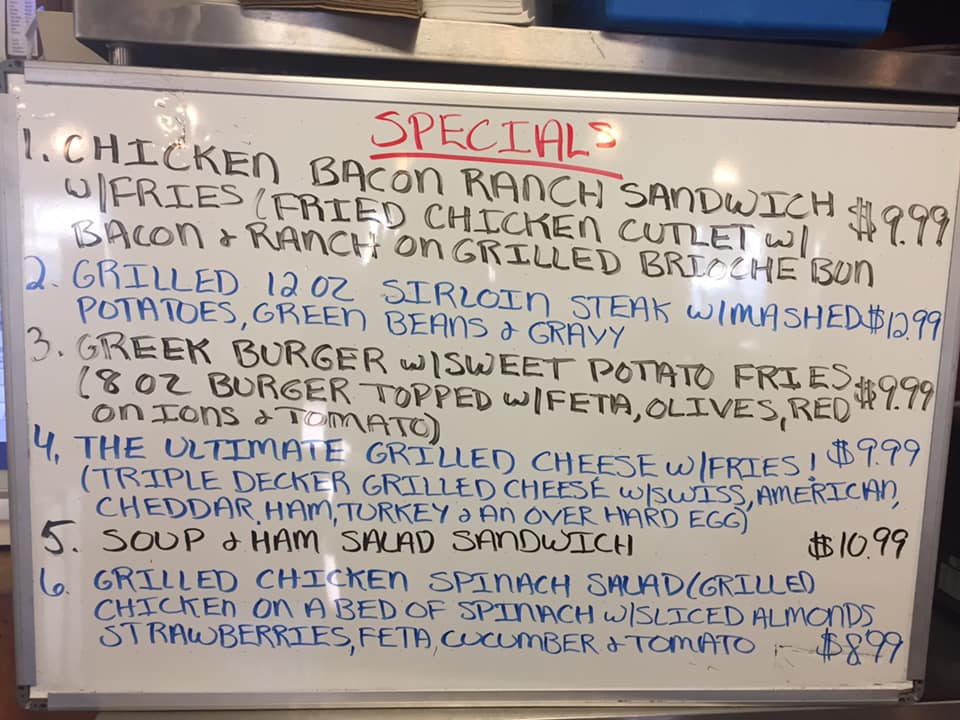 SPECIALS
1. CHICKEN BACON RANCH SANDWICH
W/FRIES (FRIED CHICKEN CUTLET W/ $9.99
BACON & RANCH ON GRILLED BRIOCHE BUN
2. GRILLED 12 OZ SIRLOIN STEAK W/MASHED $12.99
POTATOES, GREEN BEANS & GRAVY
3. GREEK BURGER W/SWEET POTATO FRIES
(8 OZ BURGER TOPPED W/FETA, OLIVES, RED $9.99
ONIONS & TOMATO)
4. THE ULTIMATE GRILLED CHEESE W/FRIES! $9.99
(TRIPLE DECKER GRILLED CHEESE W/SWISS, AMERICAN,
CHEDDAR, HAM, TURKEY & AN OVER HARD EGG)
5. SOUP & HAM SALAD SANDWICH $10.99
6. GRILLED CHICKEN SPINACH SALAD (GRILLED
CHICKEN ON A BED OF SPINACH W/SLICED ALMONDS
STRAWBERRIES, FETA, CUCUMBER & TOMATO $8.99